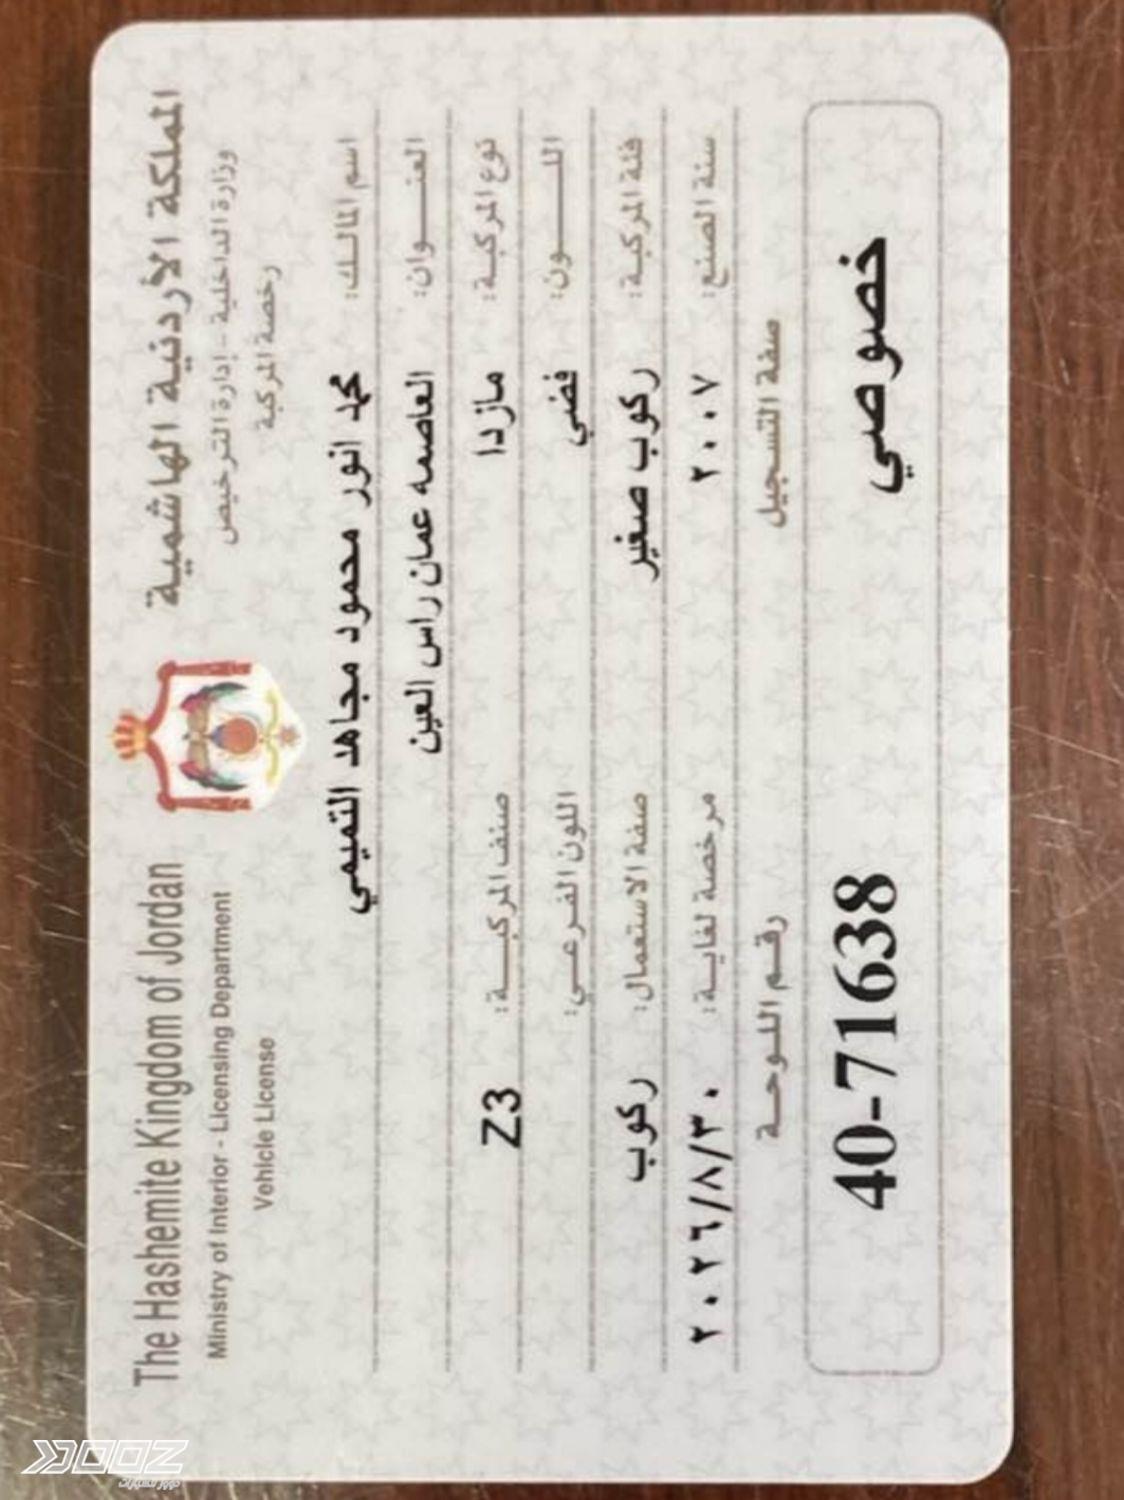 المملكة الأردنية الهاشمية
وزارة الداخلية - إدارة الترخيص
رخصة المركبة
The Hashemite Kingdom of Jordan
Ministry of Interior - Licensing Department
Vehicle License
اسم المالك: محمد انور محمود مجاهد التميمي
العنوان: العاصمه عمان راس العين
نوع المركبة: مازدا صنف المركبة: Z3
اللون: فضي اللون الفرعي:
فئة المركبة: ركوب صغير صفة الاستعمال: ركوب
سنة الصنع: ٢٠٠٧ مرخصة لغاية: ٢٠٢٦/٨/٣٠
صفة التسجيل رقم اللوحة
خصوصي 40-71638
DOOZ
دووز للسيارات